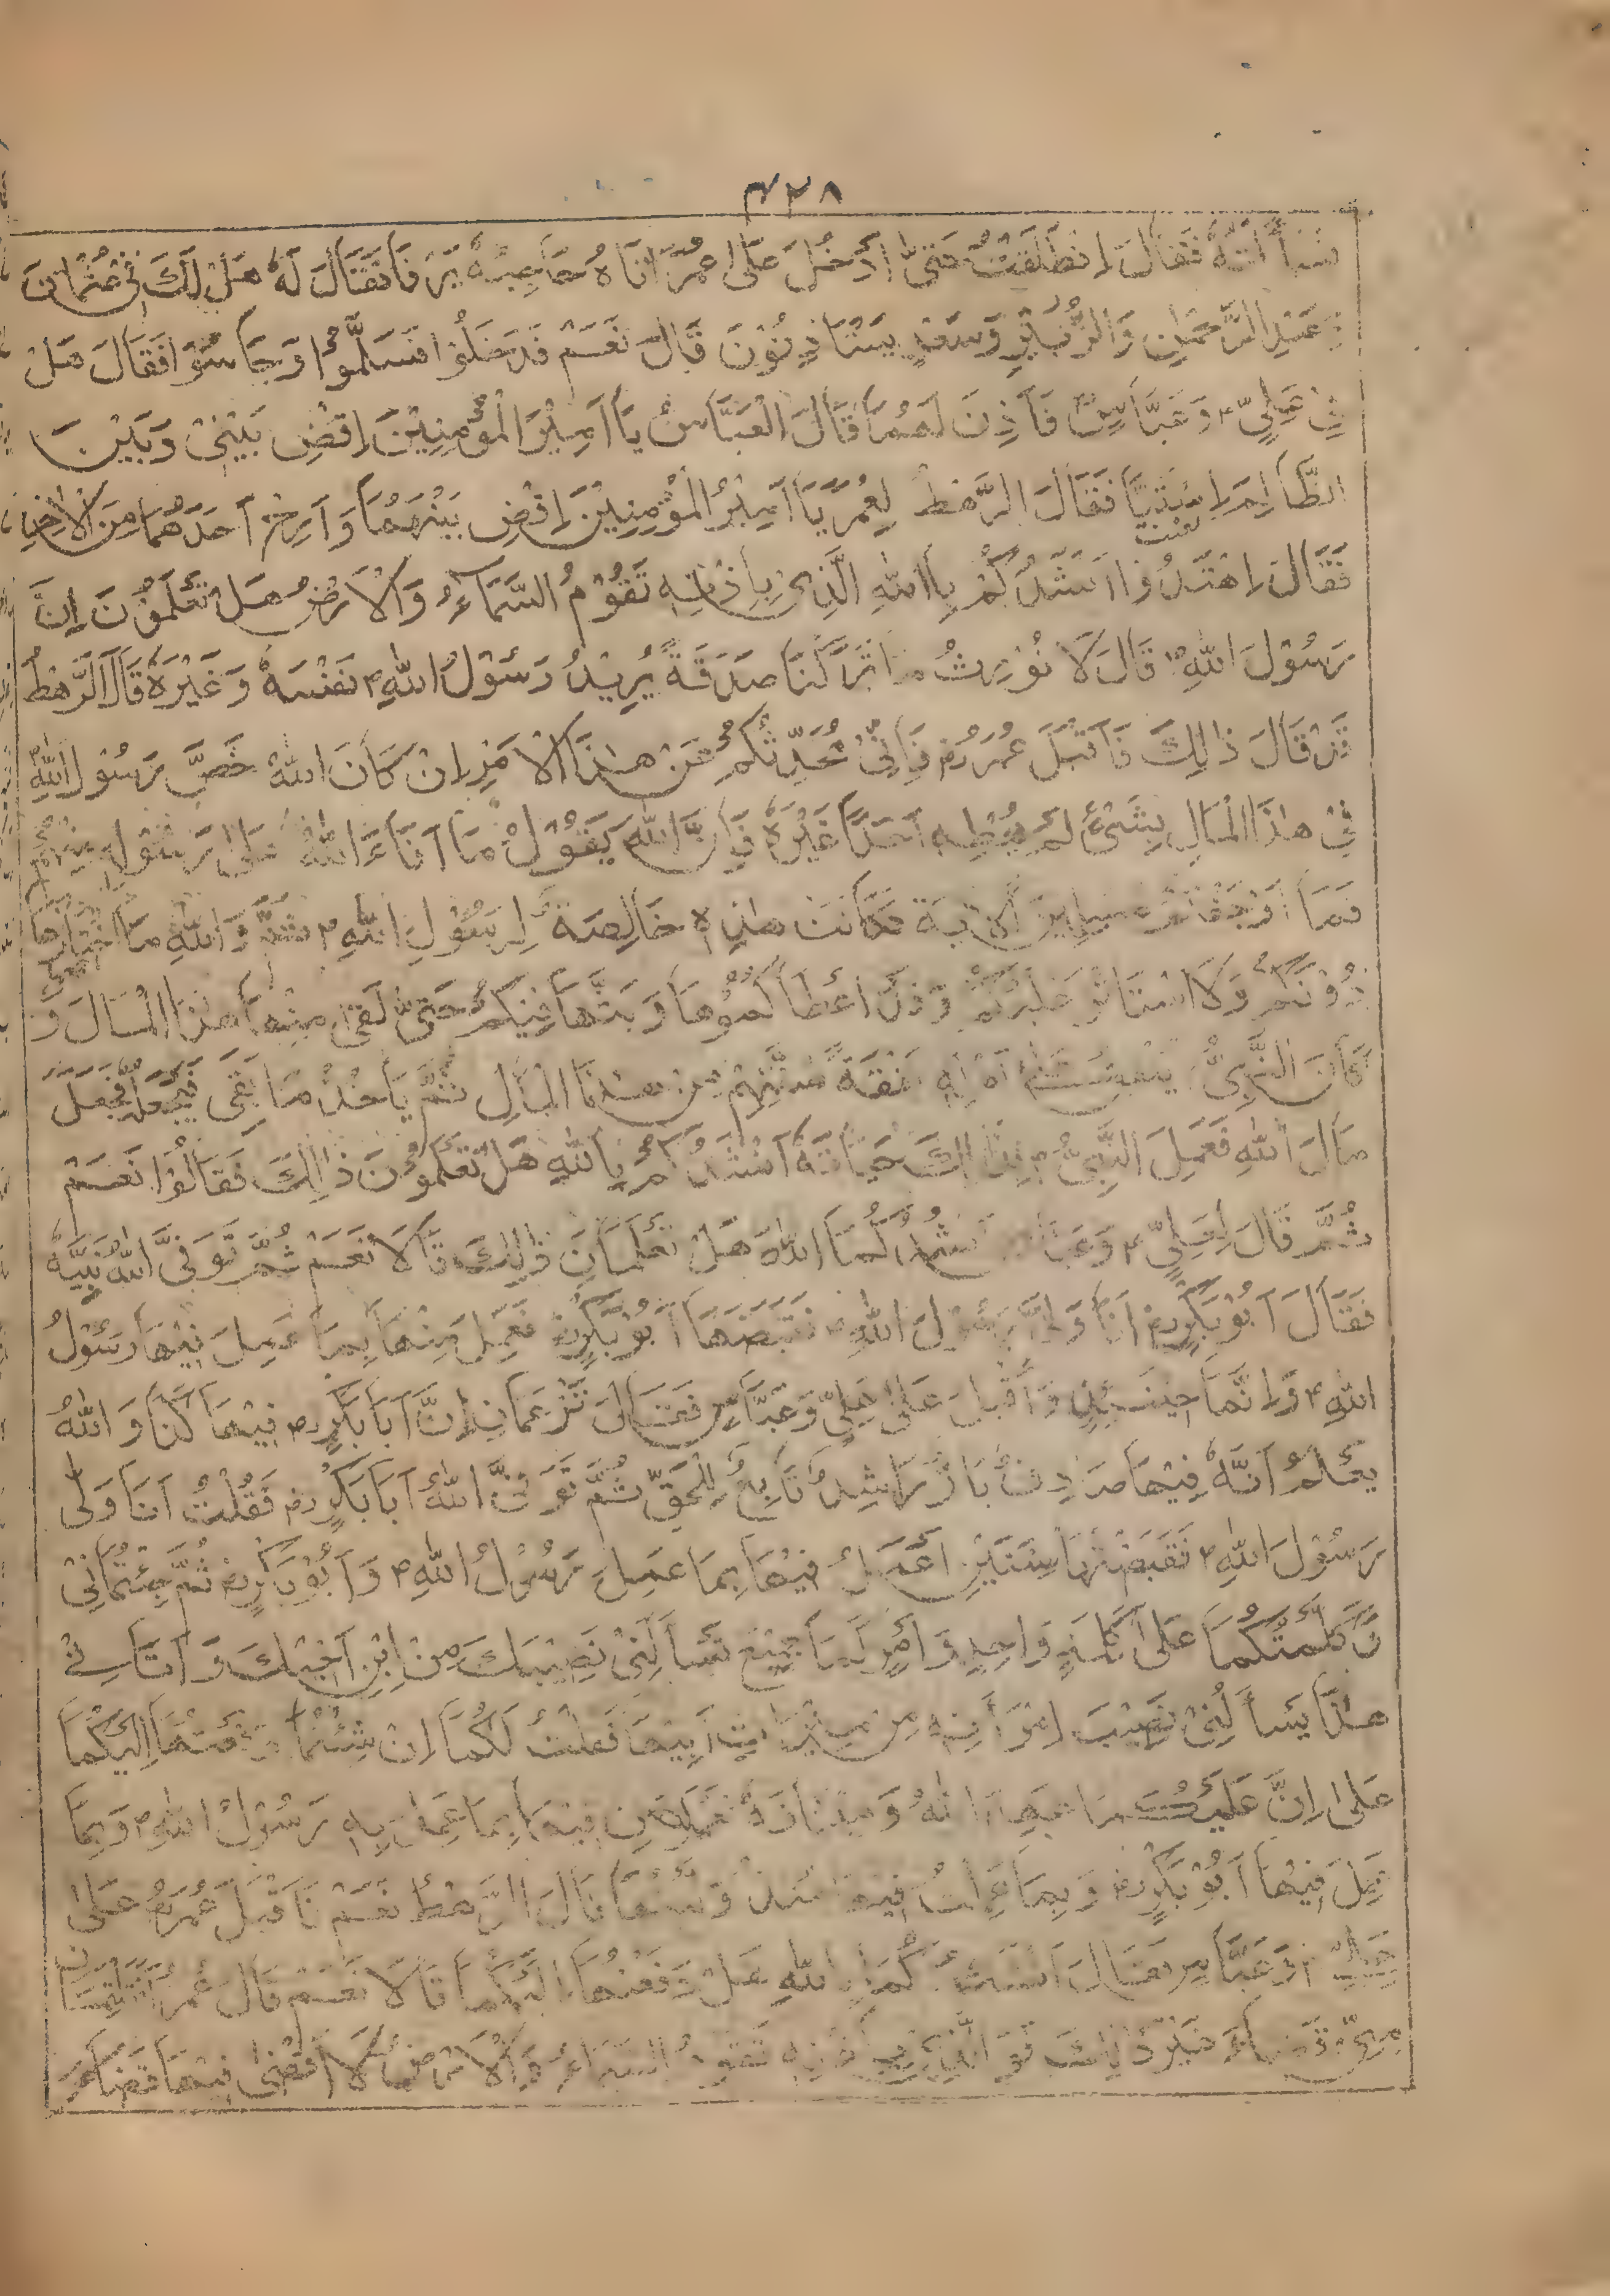 ۴۲۸
فَسَأَلْتُهُ فَقَالَ اِنْطَلَقْتُ حَتّٰى اَدْخُلَ عَلٰى عُمَرَ اَتَاهُ حَاجِبُهٗ يَرْفَا فَقَالَ لَهٗ هَلْ لَكَ فِيْ عُثْمَانَ
وَعَبْدِ الرَّحْمٰنِ وَالزُّبَيْرِ وَسَعْدٍ يَسْتَاْذِنُوْنَ قَالَ نَعَمْ فَدَخَلُوْا فَسَلَّمُوْا وَجَلَسُوْا فَقَالَ هَلْ
فِيْ عَلِيٍّ وَعَبَّاسٍ فَاَذِنَ لَهُمَا قَالَ الْعَبَّاسُ يَا اَمِيْرَ الْمُؤْمِنِيْنَ اِقْضِ بَيْنِيْ وَبَيْنَ
الظَّالِمِ اِسْتَبَّا فَقَالَ الرَّهْطُ لِعُمَرَ يَا اَمِيْرَ الْمُؤْمِنِيْنَ اِقْضِ بَيْنَهُمَا وَاَرِحْ اَحَدَهُمَا مِنَ الْاٰخَرِ
فَقَالَ اِهْتَدُوْا اَنْشُدُكُمْ بِاللّٰهِ الَّذِيْ بِاِذْنِهٖ تَقُوْمُ السَّمَاءُ وَالْاَرْضُ هَلْ تَعْلَمُوْنَ اِنَّ
رَسُوْلَ اللّٰهِ قَالَ لَا نُوْرِثُ مَا تَرَكْنَا صَدَقَةً يُرِيْدُ رَسُوْلُ اللّٰهِ نَفْسَهٗ وَغَيْرَهٗ قَالَ الرَّهْطُ
قَدْ قَالَ ذَالِكَ فَاَقْبَلَ عُمَرُ فَاِنِّيْ مُحَدِّثُكُمْ عَنْ هٰذَا الْاَمْرِ اِنْ كَانَ اللّٰهُ خَصَّ رَسُوْلَ اللّٰهِ
فِيْ هٰذَا الْمَالِ بِشَيْءٍ لَمْ يُعْطِهٖ اَحَدًا غَيْرَهٗ فَاِنَّ اللّٰهَ يَقُوْلُ مَا اَفَاءَ اللّٰهُ عَلٰى رَسُوْلِهٖ مِنْهُمْ
فَمَا اَوْجَفْتُمْ الْاٰيَةَ فَكَانَتْ هٰذِهٖ خَالِصَةً لِرَسُوْلِ اللّٰهِ ثُمَّ وَاللّٰهِ مَا
دُوْنَكُمْ وَلَا اسْتَاْثَرَ عَلَيْكُمْ وَقَدْ اَعْطَاكُمُوْهَا وَبَثَّهَا فِيْكُمْ حَتّٰى بَقِيَ مِنْهَا هٰذَا الْمَالَ وَ
كَانَ النَّبِيُّ يُنْفِقُ عَلٰى اَهْلِهٖ نَفَقَةَ سَنَتِهِمْ مِنْ هٰذَا الْمَالِ ثُمَّ يَاْخُذُ مَا بَقِيَ فَيَجْعَلُهٗ مَجْعَلَ
مَالَ اللّٰهِ فَعَمِلَ النَّبِيُّ بِذَالِكَ حَيَاتَهٗ اَنْشُدُكُمْ بِاللّٰهِ هَلْ تَعْلَمُوْنَ ذَالِكَ فَقَالُوْا نَعَمْ
ثُمَّ قَالَ لِعَلِيٍّ وَعَبَّاسٍ اَنْشُدُكُمَا اللّٰهَ هَلْ تَعْلَمَانِ ذَالِكَ قَالَا نَعَمْ ثُمَّ تَوَفَّى اللّٰهُ نَبِيَّهٗ
فَقَالَ اَبُوْبَكْرٍ اَنَا وَلِيُّ رَسُوْلَ اللّٰهِ فَقَبَضَهَا اَبُوْبَكْرٍ فَعَمِلَ مِنْهَا بِمَا عَمِلَ فِيْهَا رَسُوْلُ
اللّٰهِ وَاَنْتُمَا حِيْنَئِذٍ وَاَقْبَلَ عَلٰى عَلِيٍّ وَعَبَّاسٍ فَقَالَ تَزْعَمَانِ اِنَّ اَبَا بَكْرٍ فِيْهَا كَذَا وَاللّٰهُ
يَعْلَمُ اَنَّهٗ فِيْهَا صَادِقٌ بَارٌّ رَاشِدٌ تَابِعٌ لِلْحَقِّ ثُمَّ تَوَفَّى اللّٰهُ اَبَا بَكْرٍ فَقُلْتُ اَنَا وَلِيُّ
رَسُوْلَ اللّٰهِ فَقَبَضْتُهَا سَنَتَيْنِ اَعْمَلُ فِيْهَا بِمَا عَمِلَ رَسُوْلُ اللّٰهِ وَاَبُوْبَكْرٍ ثُمَّ جِئْتُمَانِيْ
وَكَلَّمْتُكُمَا عَلٰى كَلِمَةٍ وَاحِدٍ وَاَمْرِكُمَا جَمِيْعٌ تَسْاَلُنِيْ نَصِيْبَكَ مِنْ اِبْنِ اَخِيْكَ وَاَتَانِيْ
هٰذَا يَسْاَلُنِيْ نَصِيْبَ اِمْرَأَتِهٖ مِنْ مِيْرَاثِ اَبِيْهَا فَقُلْتُ لَكُمَا اِنْ شِئْتُمَا دَفَعْتُهَا اِلَيْكُمَا
عَلٰى اِنَّ عَلَيْكُمَا عَهْدَ اللّٰهِ وَمِيْثَاقَهٗ تَعْمَلَانِ فِيْهَا بِمَا عَمِلَ بِهٖ رَسُوْلُ اللّٰهِ وَبِمَا
عَمِلَ فِيْهَا اَبُوْبَكْرٍ وَبِمَا عَمِلْتُ فِيْهَا قَالَ الرَّهْطُ نَعَمْ فَاَقْبَلَ عُمَرُ عَلٰى
عَلِيٍّ وَعَبَّاسٍ فَقَالَ اَنْشُدُكُمَا بِاللّٰهِ هَلْ دَفَعْتُهَا اِلَيْكُمَا قَالَا نَعَمْ قَالَ عُمَرُ
مِنِّيْ قَضَاءً غَيْرَ ذَالِكَ فَوَالَّذِيْ بِاِذْنِهٖ تَقُوْمُ السَّمَاءُ وَالْاَرْضُ لَا اَقْضِيْ فِيْهَا قَضَاكُمْ